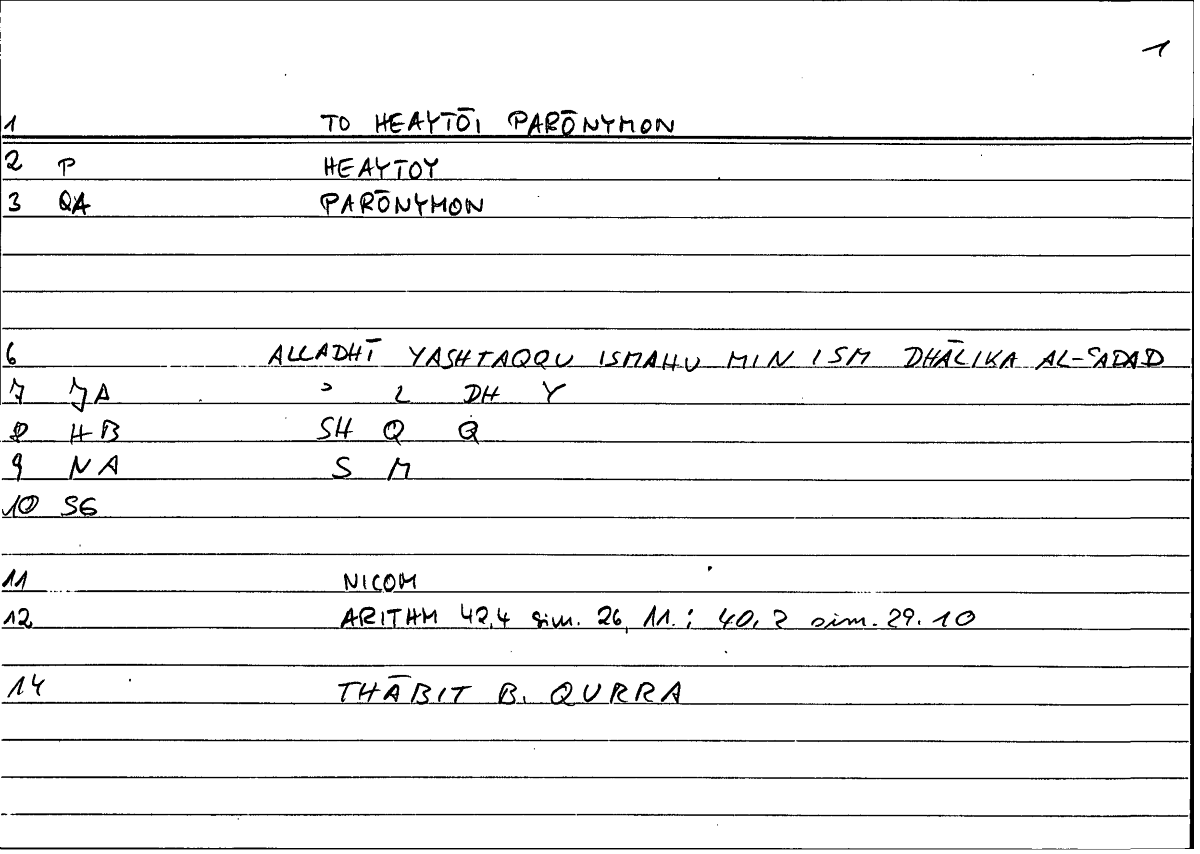 1
1 TO HEAYTŌI PARŌNYMON
2 P HEAYTOY
3 QA PARŌNYMON
6 ALLADHĪ YASHTAQQU ISMAHU MIN ISM DHĀLIKA AL-ʿADAD
7 JA ʾ L DH Y
8 HB SH Q Q
9 NA S M
10 SG
11 NICOM
12 ARITHM 42,4 sim. 26, 11.; 40, 2 sim. 29. 10
14 THĀBIT B. QURRA